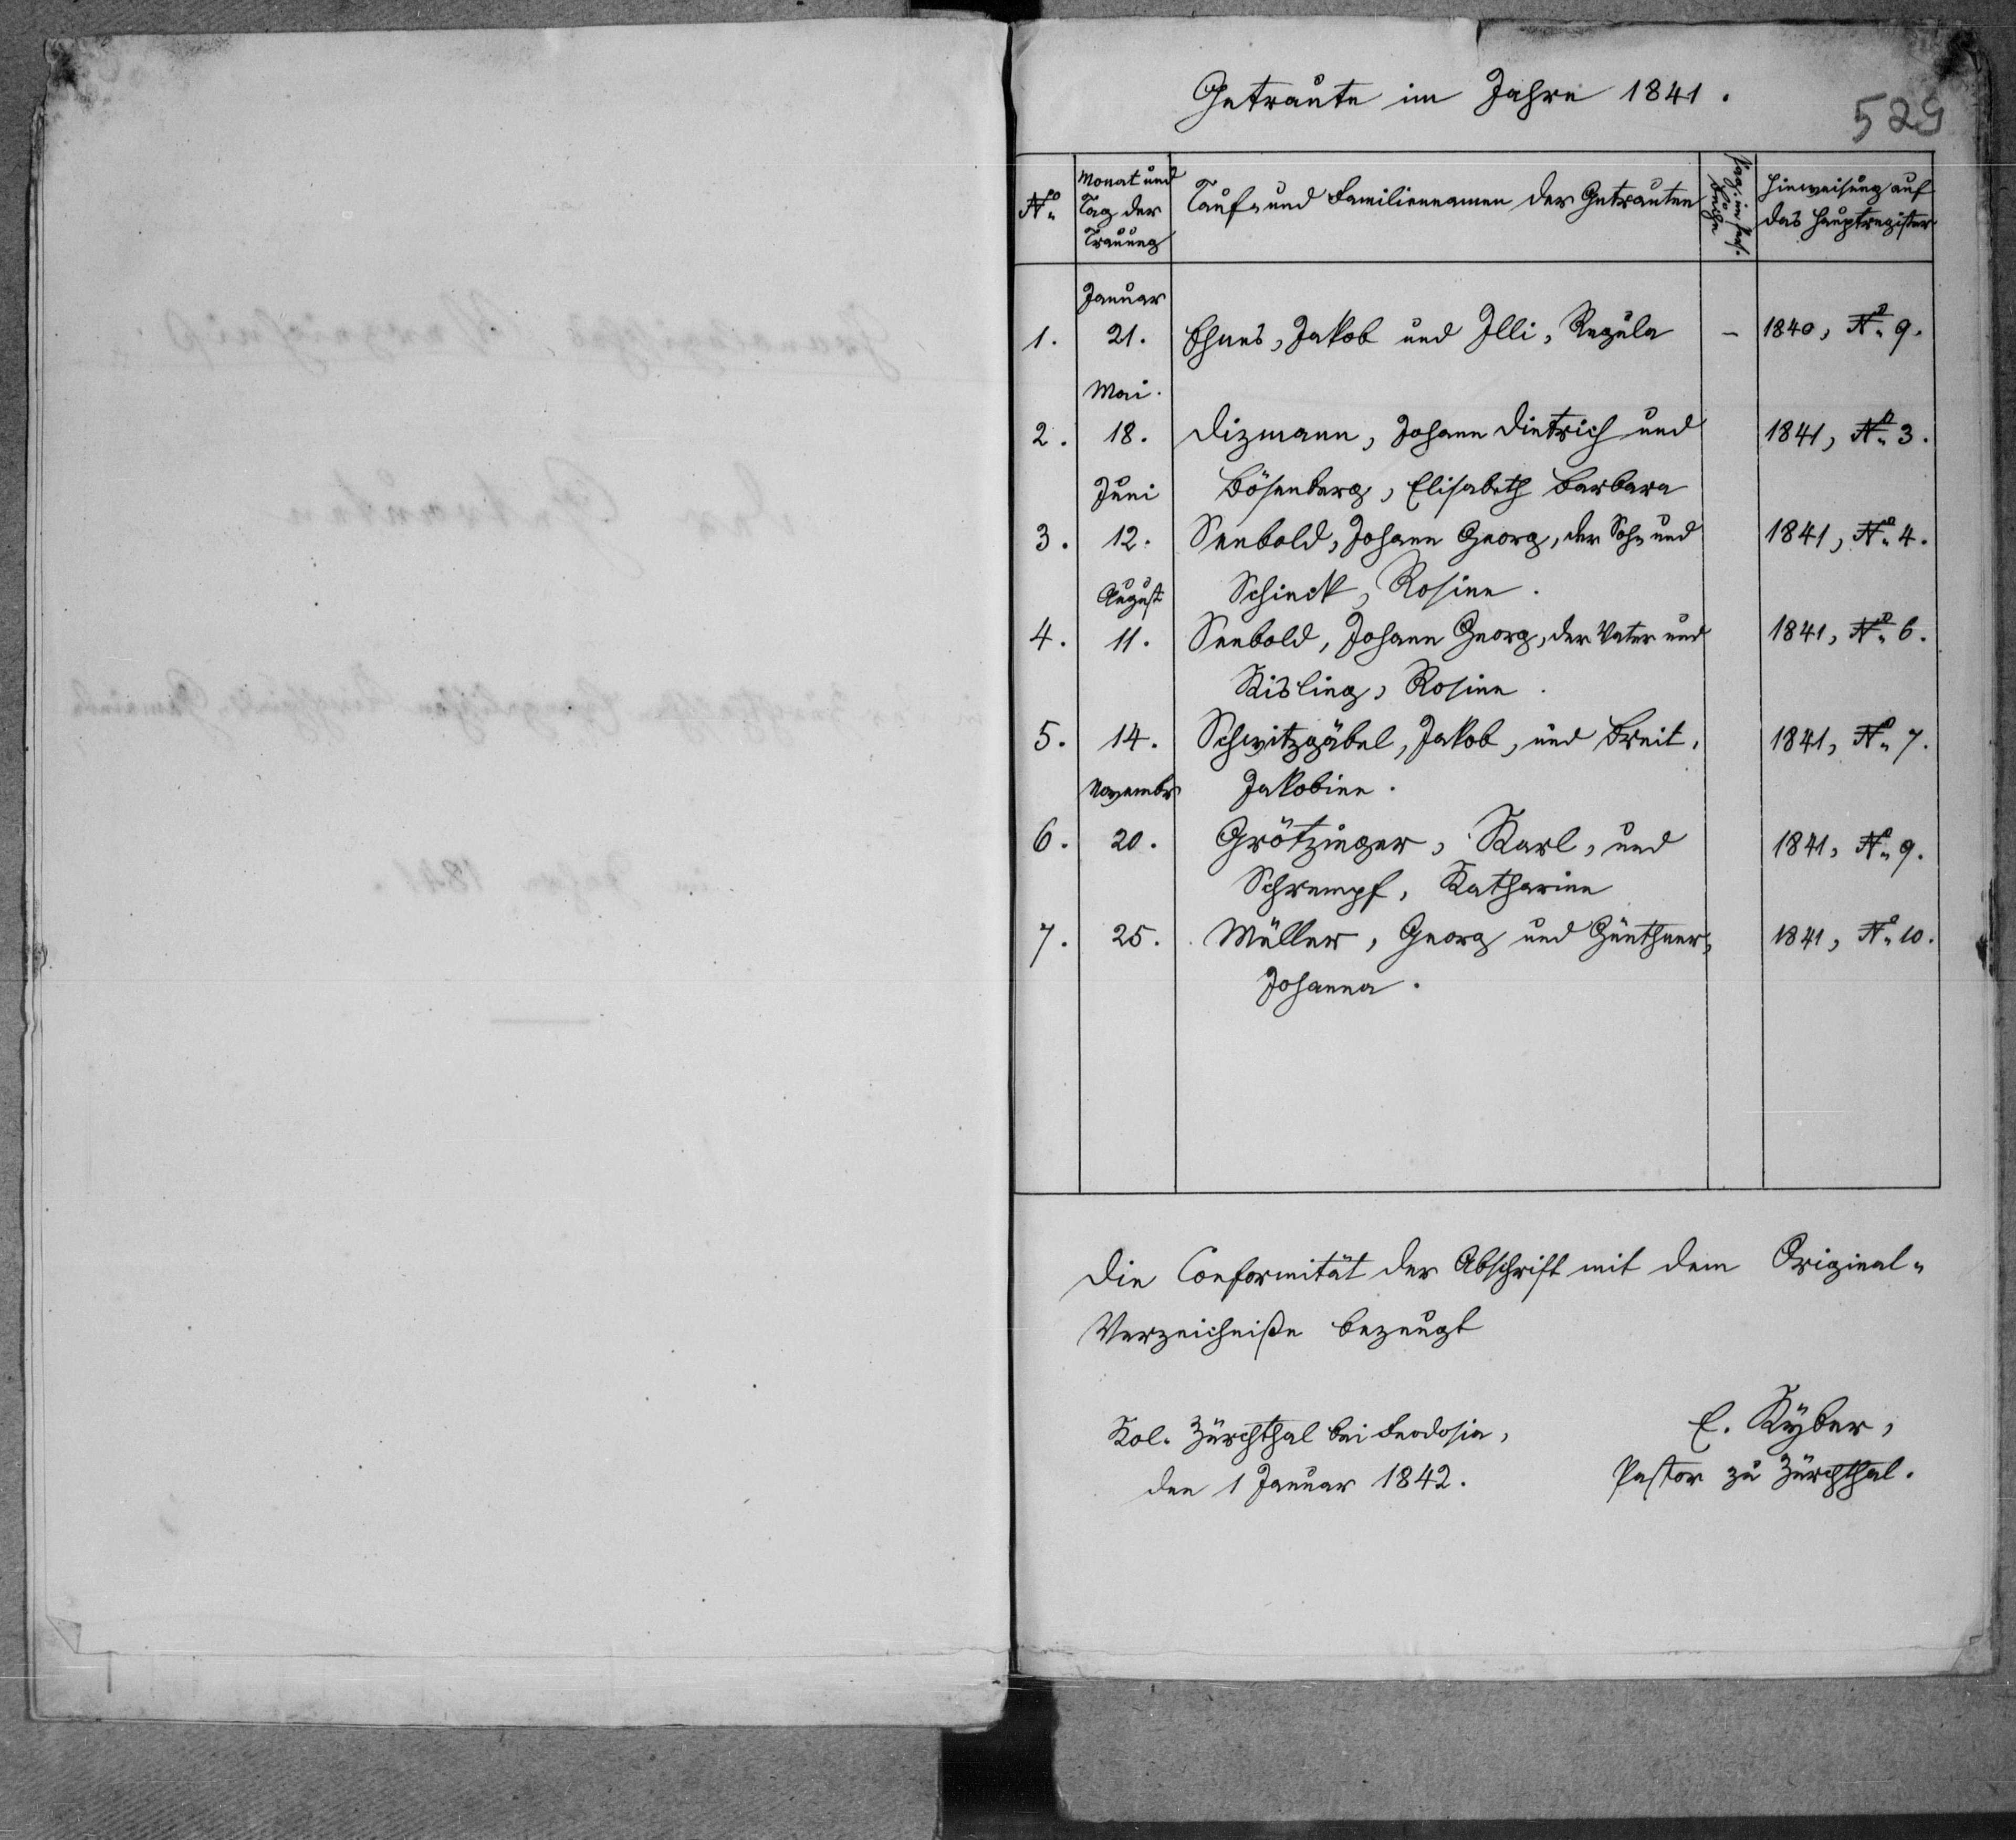 Getraute im Jahre 1841.
529
No.
Monat und
Tag der
Trauung
Tauf- und Familiennamen der Getrauten
Pag. im Pers.
Buche
Hinweisung auf
das Hauptregister
Januar
1. 21. Ehnes, Jakob und Illi, Regula – 1840, No. 9.
Mai.
2. 18. Dizmann, Johann Dietrich und 1841, No. 3.
Juni Bösenberg, Elisabeth Barbara
3. 12. Seebold, Johann Georg, der Sohn und 1841, No. 4.
August Schieck, Rosine.
4. 11. Seebold, Johann Georg, der Vater und 1841, No. 6.
Kisling, Rosine.
5. 14. Schwitzgäbel, Jakob, und Breit, 1841, No. 7.
November Jakobine.
6. 20. Grötzinger, Karl, und 1841, No. 9.
Schrempf, Katharine
7. 25. Müller, Georg und Günthner, 1841, No. 10.
Johanna.
Die Conformität der Abschrift mit dem Original-
Verzeichniße bezeugt
Kol. Zürchthal bei Feodosia,
den 1 Januar 1842.
E. Kyber,
Pastor zu Zürchthal.